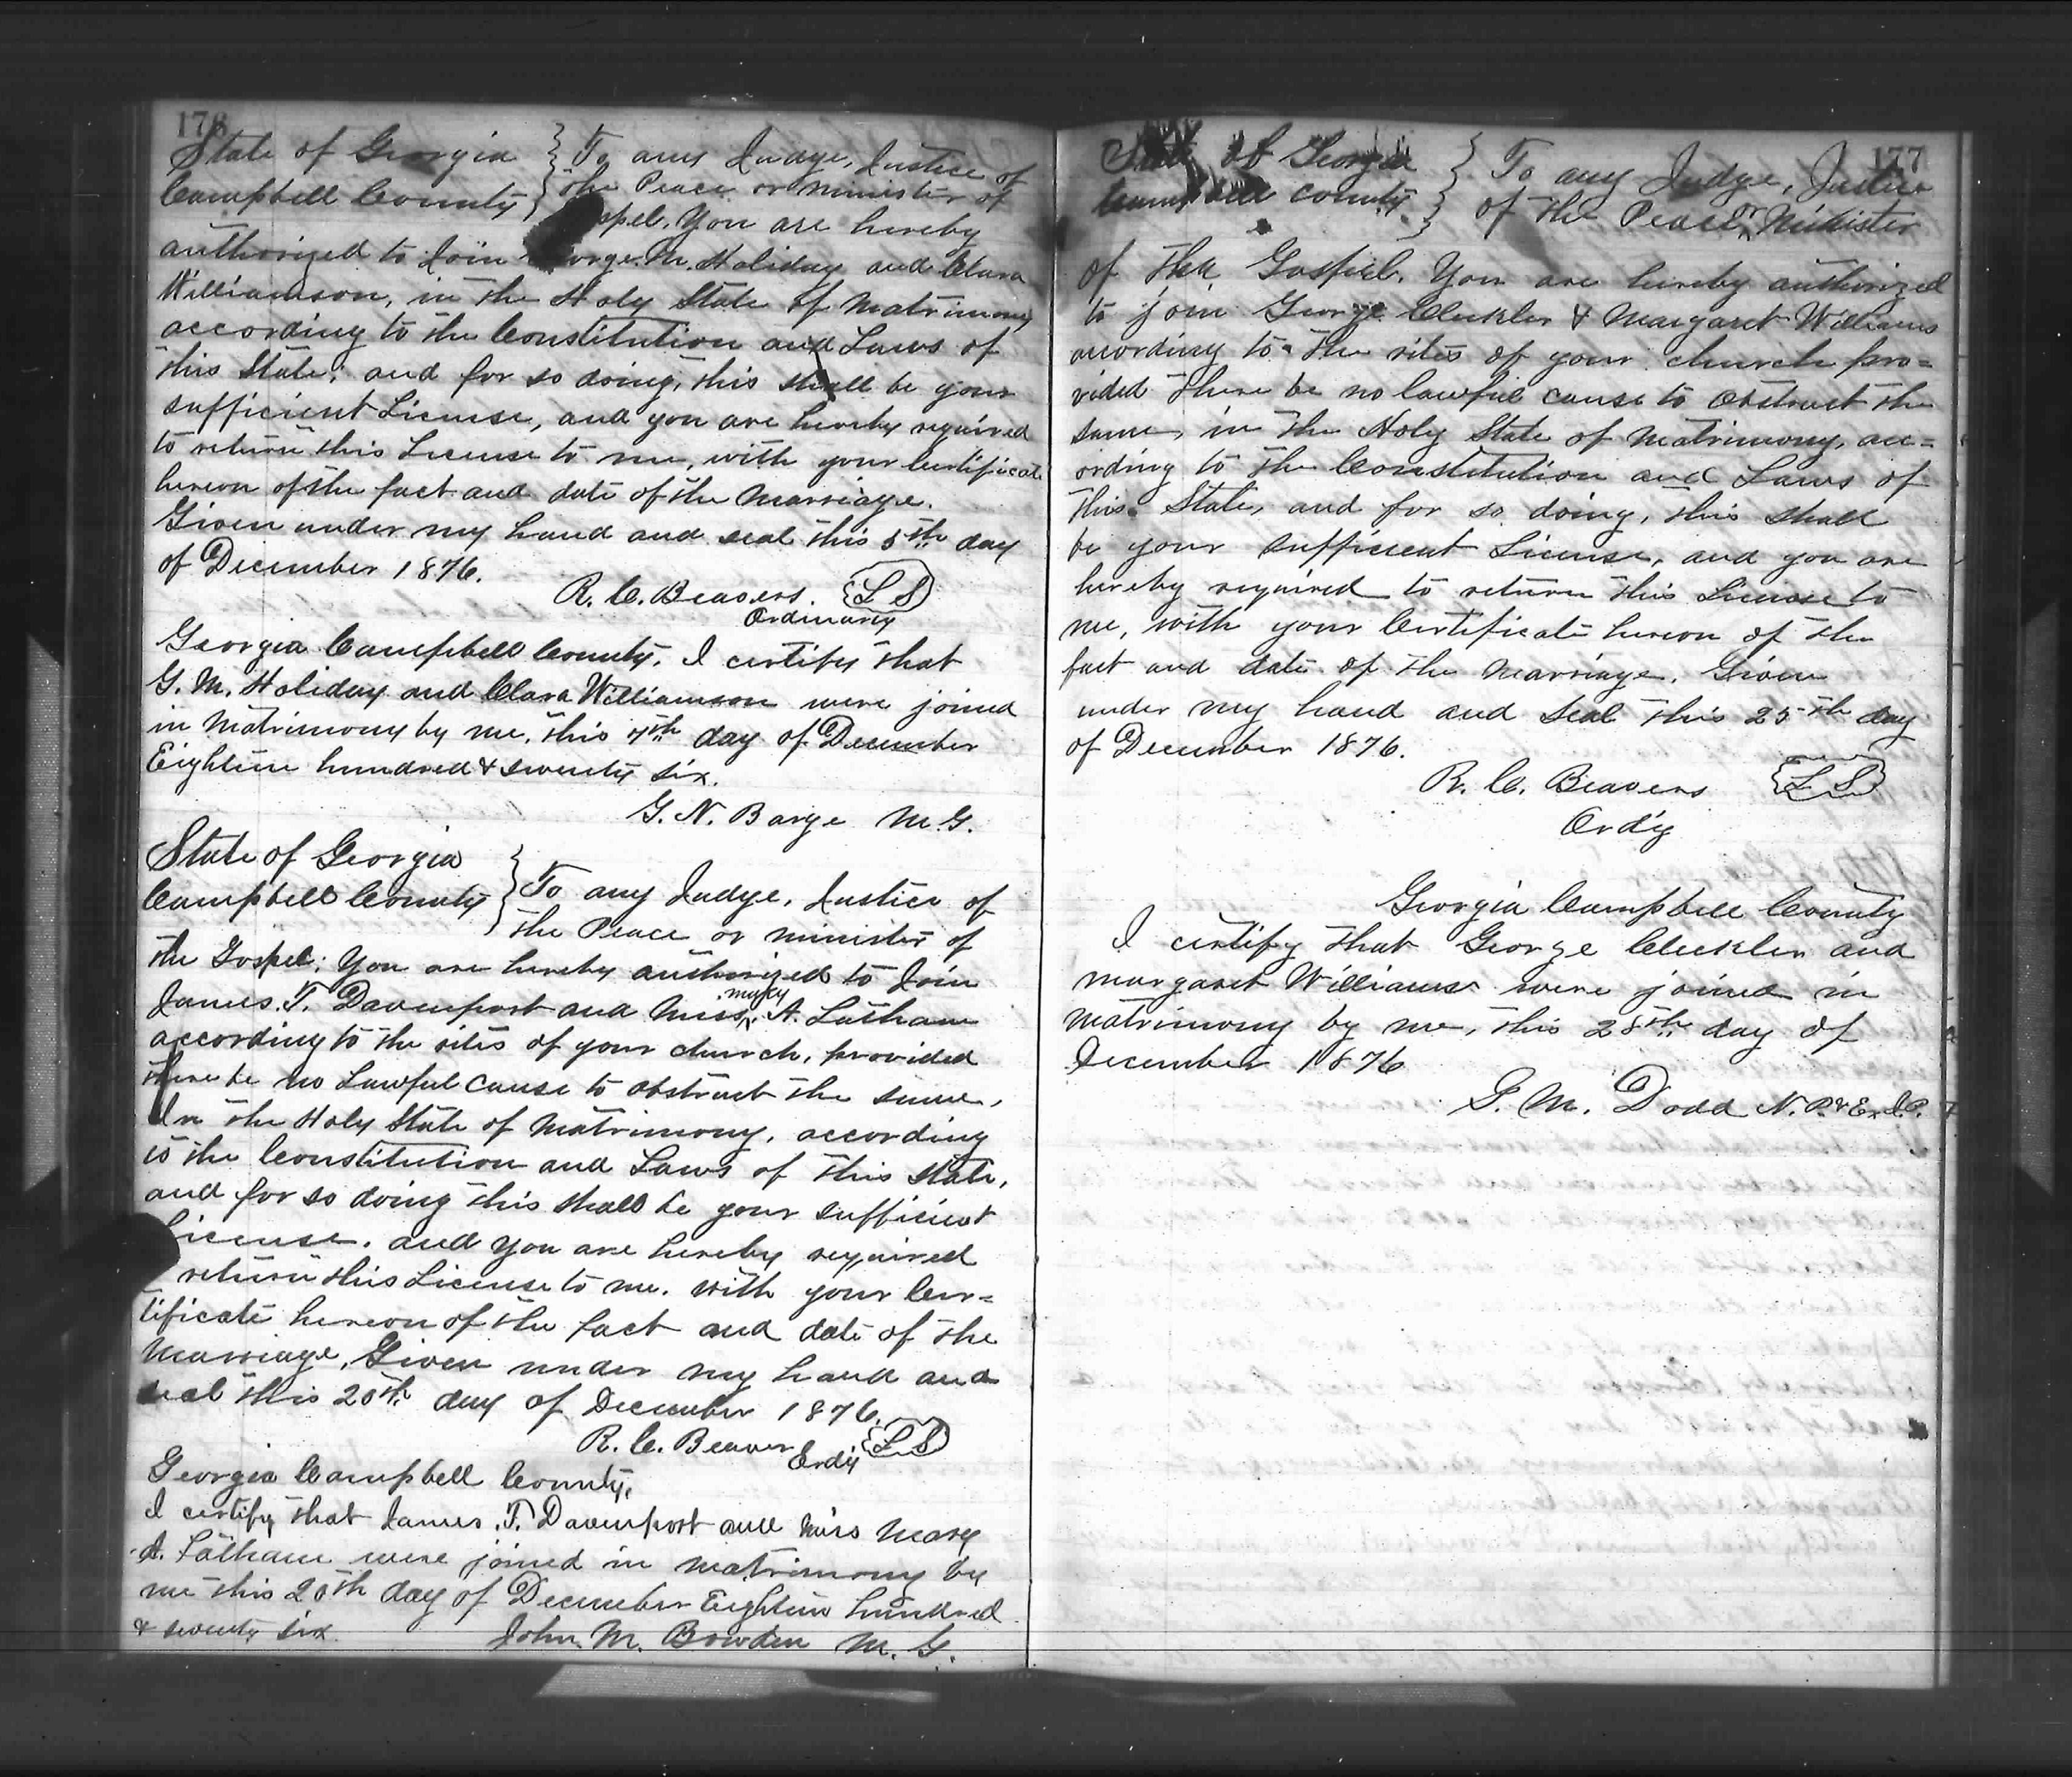 State of Georgia } To any Judge, Justice of
Campbell County } the Peace or minister of
spel. You are hereby
authorized to Join orge. M. Holiday and Clara
Williamson, in the Holy State of Matrimony
according to the Constitution and Laws of
this State; and for so doing, this shall be your
sufficient License, and you are hereby required
to return this License to me, with your Certificate
hereon of the fact and date of the Marriage.
Given under my hand and seal this 5th day
of December 1876.
R. C. Beavers. L S
Ordinary
Georgia Campbell County. I certify that
G. M. Holiday and Clara Williamson were joined
in Matrimony by me, this 7th day of December
Eighteen hundred & seventy six.
G. N. Barge M.G.
State of Georgia
Campbell County } To any Judge, Justice of
the Peace or minister of
the Gospel; You are hereby authorized to Join
mary
James. T. Davenport and Miss A. Latham
according to the rites of your church, provided
there be no Lawful cause to obstruct the same,
In the Holy State of Matrimony, according
to the Constitution and Laws of this State,
and for so doing this shall be your sufficient
License. and you are hereby required
return this License to me. with your Cer=
tificate hereon of the fact and date of the
Marriage, Given under my hand and
seal this 20th day of December 1876.
R. C. Beaver L S
Ordy
Georgia Campbell County,
I certify that James. T. Davenport and Miss Mary
A. Latham were joined in matrimony by
me this 20th day of December Eighteen hundred
& seventy six.
John. M. Bowden M. G.
177
State of Georgia } To any Judge, Justice
Campbell County } of the Peace or Minister
of the Gospel. You are hereby authorized
to join George Cleckler & Margaret Williams
acording to the rites of your church pro=
vided there be no lawful cause to obstruct the
same, in the Holy State of Matrimony, acc=
ording to the Constitution and Laws of
this State, and for so doing, this shall
be your sufficient License, and you are
hereby required to return this License to
me, with your Certificate hereon of the
fact and date of the Marriage. Given
under my hand and Seal this 25th day
of December 1876.
R. C. Beavers L S
Ordy
Georgia Campbell County
I certify that George Cleckler and
Margaret Williams were joined in
Matrimony by me, this 28th day of
December 1876
G. M. Dodd N. P. & Ex J.P.